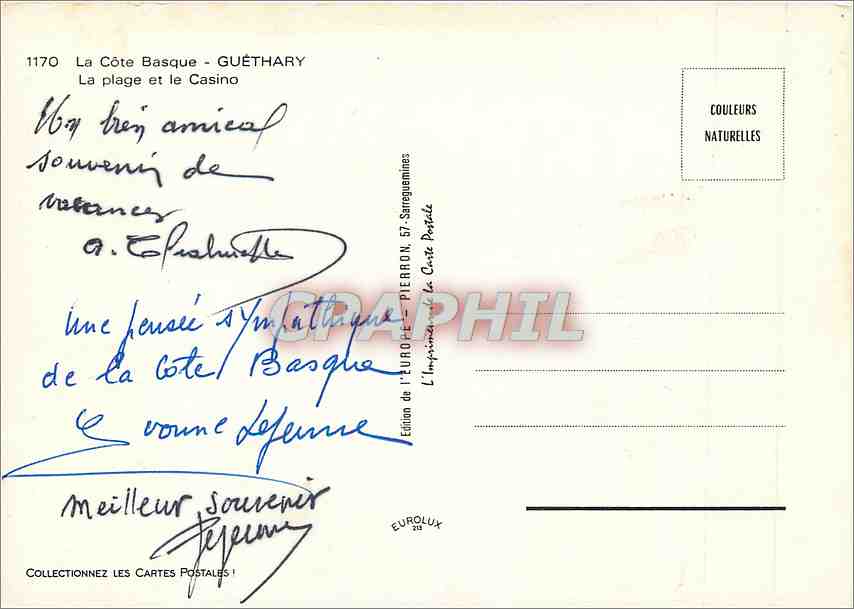 1170 La Côte Basque - GUÉTHARY
La plage et le Casino
Un bien amical
souvenir de
vacances
Une pensée sympathique
de la Côte Basque
Yvonne Lejeune
Meilleur souvenir
Lejeune
COLLECTIONNEZ LES CARTES POSTALES !
Edition de l'EUROPE - PIERRON, 57-Sarreguemines
L'Imprimeur de la Carte Postale
CPAPHIL
EUROLUX
213
COULEURS
NATURELLES